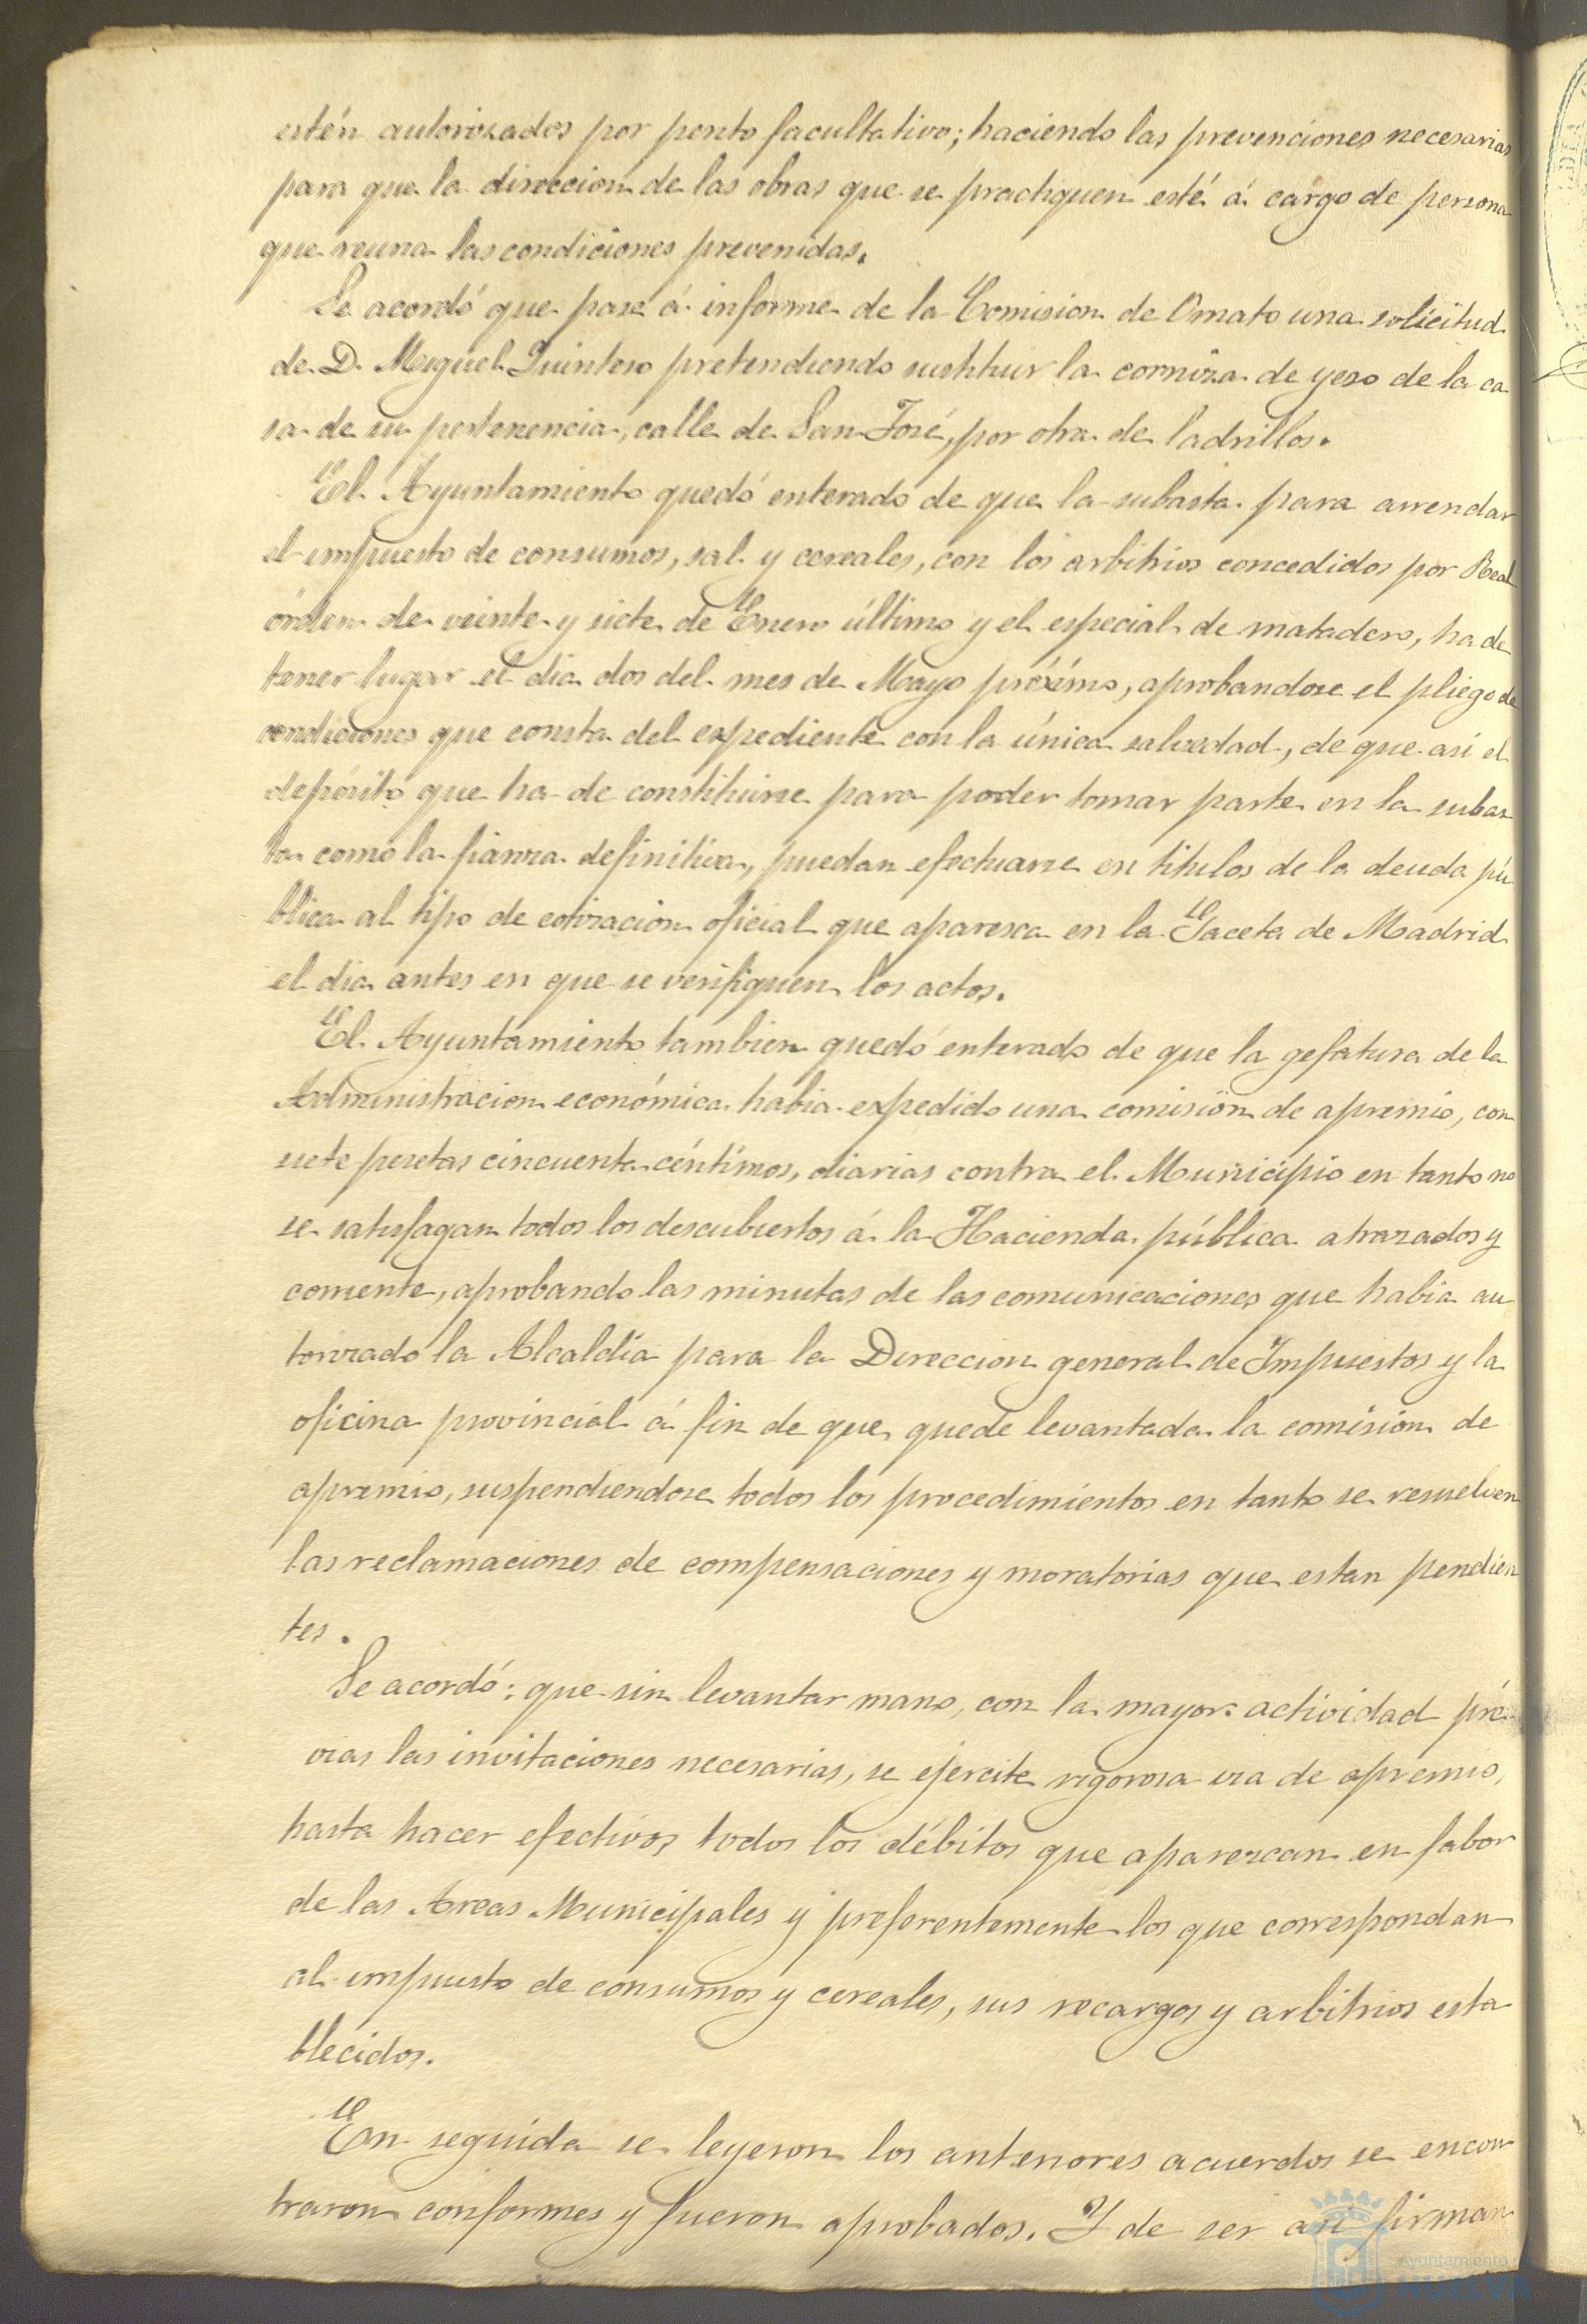 estén autorizados por perito facultativo; haciendo las prevenciones necesarias
para que la direccion de las obras que se practiquen esté á cargo de persona
que reuna las condiciones prevenidas.
Se acordó que pase á informe de la Comision de Ornato una solicitud
de D. Miguel Quintero pretendiendo sustituir la corniza de yeso de la ca
sa de su pertenencia, calle de San José, por otra de ladrillos.
El Ayuntamiento quedó enterado de que la subasta para arrendar
el impuesto de consumos, sal y cereales, con los arbitrios concedidos por Real
órden de veinte y siete de Enero último y el especial de matadero, ha de
tener lugar el dia dos del mes de Mayo próximo, aprobandose el pliego de
condiciones que consta del expediente con la única salvedad, de que asi el
depósito que ha de constituirse para poder tomar parte en la subas
ta como la fianza definitiva, puedan efectuarse en titulos de la deuda pú
blica al tipo de cotizacion oficial que aparezca en la Gaceta de Madrid
el dia antes en que se verifiquen los actos.
El Ayuntamiento tambien quedó enterado de que la gefatura de la
Administracion económica habia expedido una comision de apremio, con
siete pesetas cincuenta céntimos, diarias contra el Municipio en tanto no
se satisfagan todos los descubiertos á la Hacienda pública atrazados y
corriente, aprobando las minutas de las comunicaciones que habia au
torizado la Alcaldía para la Direccion general de Impuestos y la
oficina provincial á fin de que quede levantada la comision de
apremio, suspendiendose todos los procedimientos en tanto se resuelven
las reclamaciones de compensaciones y moratorias que estan pendien
tes.
Se acordó: que sin levantar mano, con la mayor actividad pré
vias las invitaciones necesarias, se ejercite rigorosa via de apremio,
hasta hacer efectivos todos los débitos que aparezcan en fabor
de las Arcas Municipales y preferentemente los que correspondan
al impuesto de consumos y cereales, sus recargos y arbitrios esta
blecidos.
En seguida se leyeron los anteriores acuerdos se encon
traron conformes y fueron aprobados. Y de ser asi firman
Ayuntamiento de
HUELVA